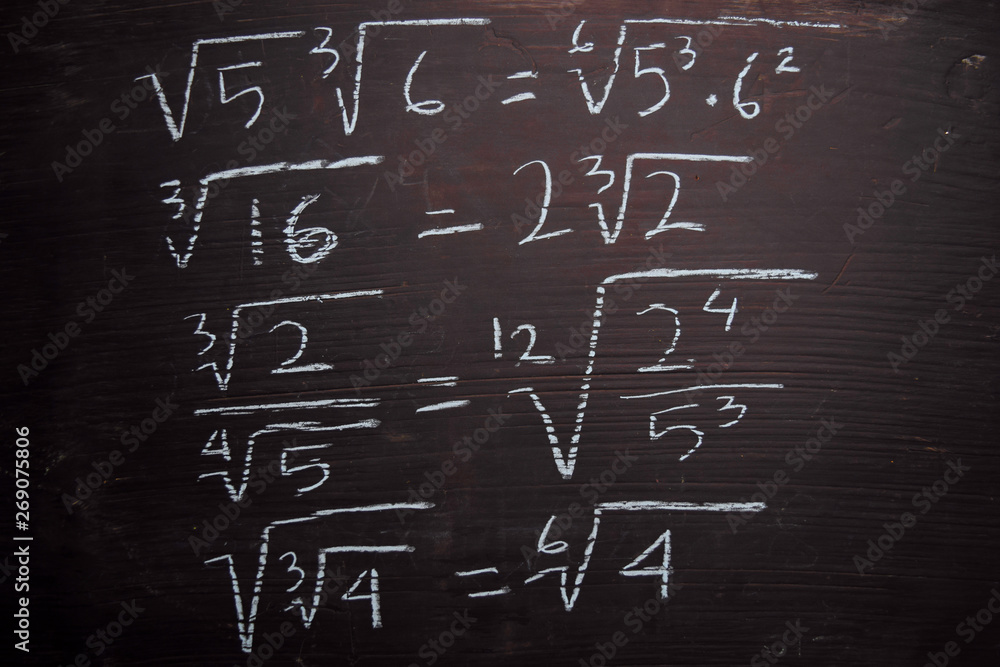 √5 ∛6 = ⁶√(5³·6²)
∛16 = 2∛2
∛2 / ∜5 = ¹²√(2⁴/5³)
√(∛4) = ⁶√4
Adobe Stock | #269075806